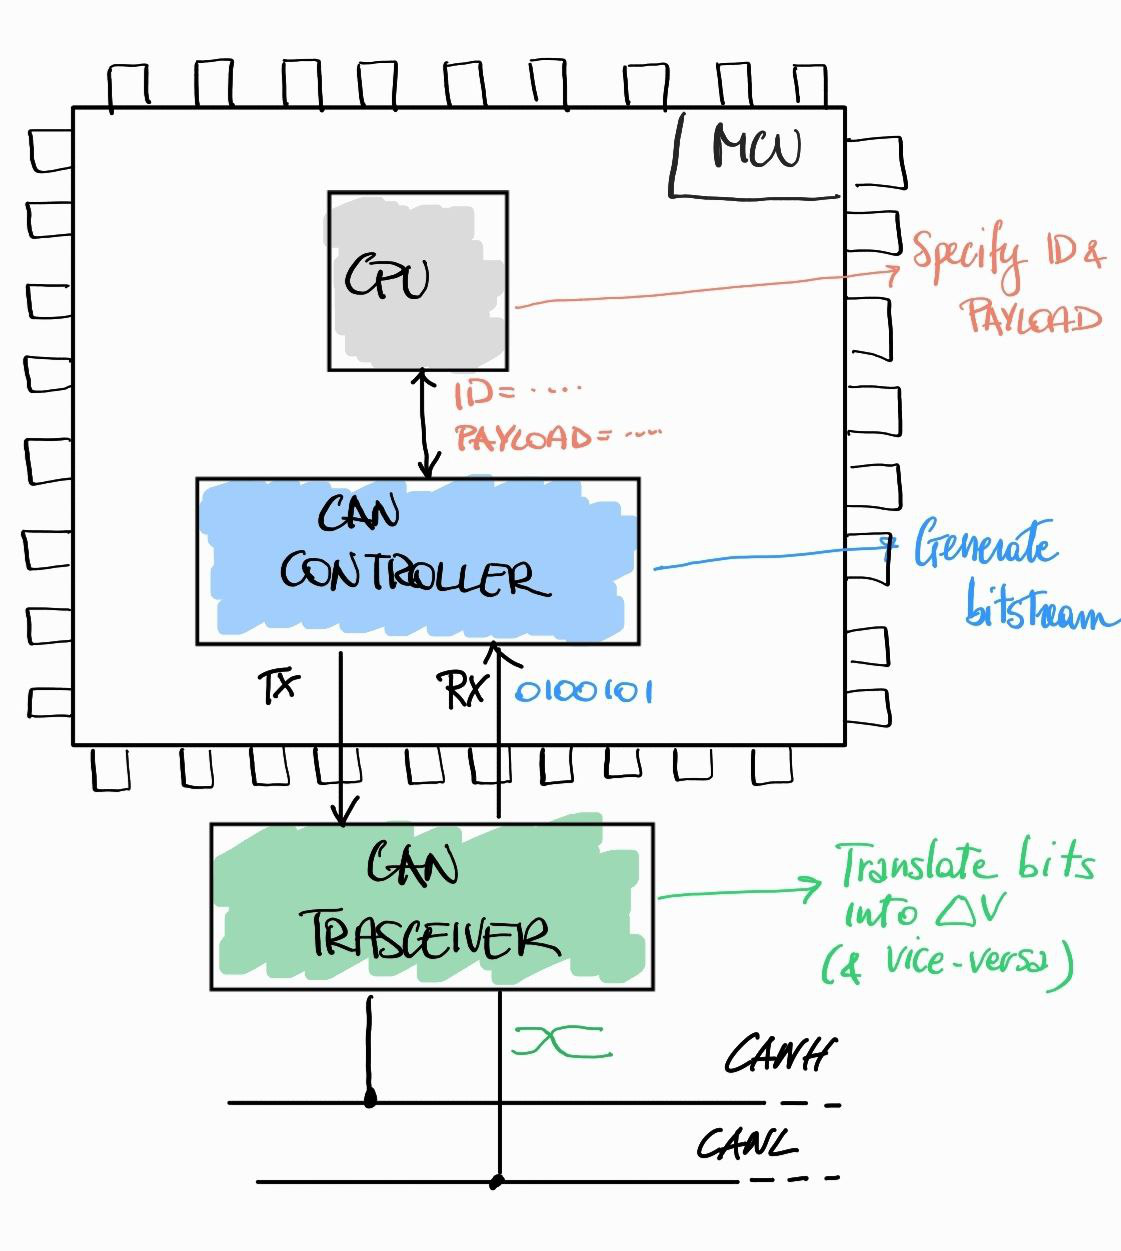 MCU
CPU
Specify ID &
PAYLOAD
ID = ....
PAYLOAD = ....
CAN
CONTROLLER
Generate
bitstream
TX
RX
0100101
CAN
TRASCEIVER
Translate bits
into ΔV
(& vice-versa)
CANH
CANL